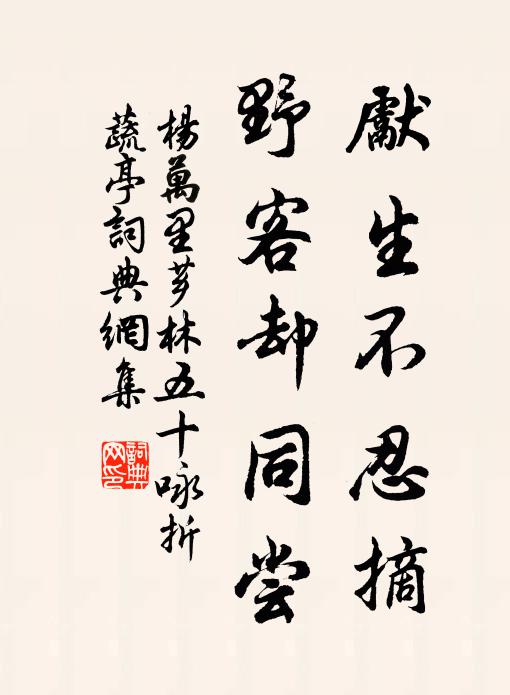 獻生不忍摘
野客却同尝
楊萬里芗林五十咏折
蔬亭詞典網集
詞典
网印